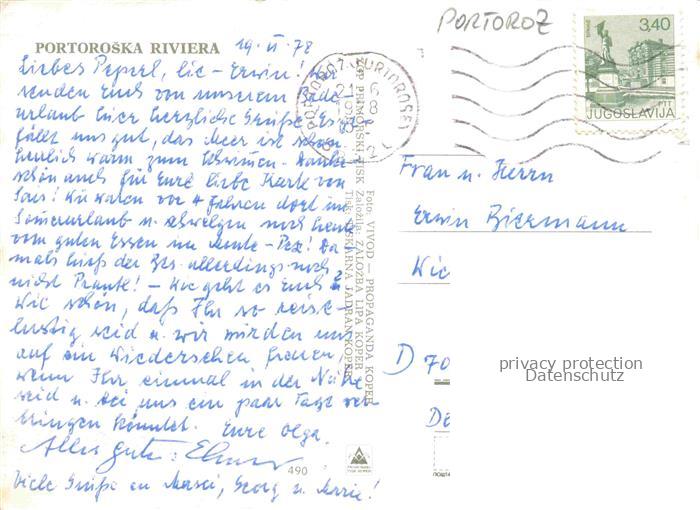 PORTOROŠKA RIVIERA
19. VI. 78
PORTOROZ
Liebes Peperl, lie- Erwin! Wir
senden Euch von unserem Bade-
urlaub hier herzliche Grüße. Es ge-
fällt uns gut, das Meer ist schon
herrlich warm zum Schwimmen. Danke
schön auch für Eure liebe Karte von
! Wir waren vor 4 Jahren dort im
Sommerurlaub u. schwelgen noch heute
vom guten Essen im Monte-Pez! Da-
mals hieß der Bes. allerdings noch
nicht ! – Wie geht es Euch?
Wie schön, daß Ihr so reise-
lustig seid u. wir würden uns
auf ein Wiedersehen freuen,
wenn Ihr einmal in der Nähe
seid u. bei uns ein paar Tage ver-
bringen könntet. Eure Olga.
Alles Gute:
Viele Grüße an , Georg u. Marie!
490
Foto: VIVOD — PROPAGANDA KOPER
RTP PRIMORSKI TISK Založila: ZALOŽBA LIPA KOPER
Tisk: TISKARNA JADRAN KOPER
3,40
PTT
JUGOSLAVIJA
PORTOROŽ PORTOROSE
Frau u. Herrn
Erwin Biermann
Wie
D 70
De
privacy protection
Datenschutz